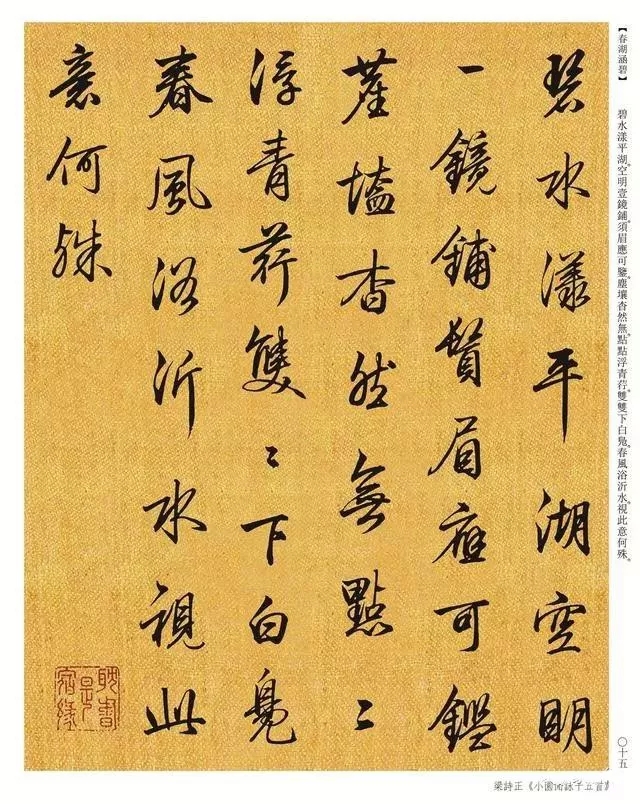 碧水漾平湖空明
一鏡鋪鬚眉應可鑑
塵壒杳然無點〻
浮青荇雙〻下白鳧
春風浴沂水視此
意何殊
耽書是宿緣
【春湖涵碧】
碧水漾平湖。空明壹鏡鋪。須眉應可鑒。塵壤杳然無。點點浮青荇。雙雙下白凫。春風浴沂水。視此意何殊。
〇十五
梁詩正《小園閒詠十五首》